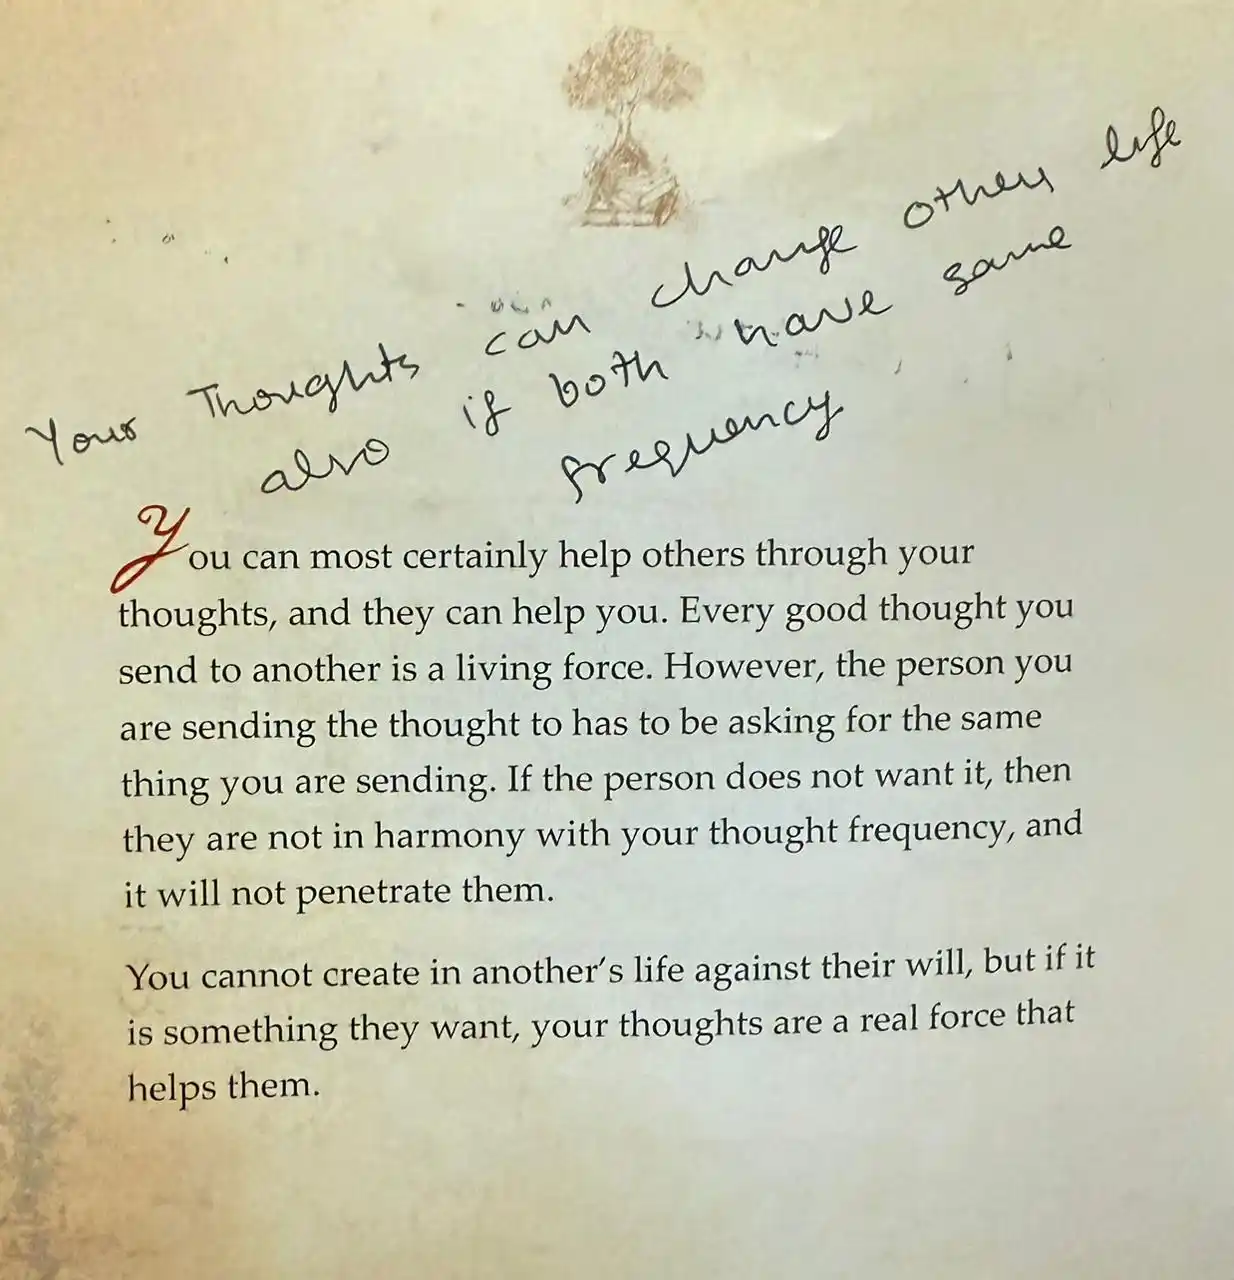 Your Thoughts can change other life
also if both have same
frequency
You can most certainly help others through your
thoughts, and they can help you. Every good thought you
send to another is a living force. However, the person you
are sending the thought to has to be asking for the same
thing you are sending. If the person does not want it, then
they are not in harmony with your thought frequency, and
it will not penetrate them.
You cannot create in another’s life against their will, but if it
is something they want, your thoughts are a real force that
helps them.